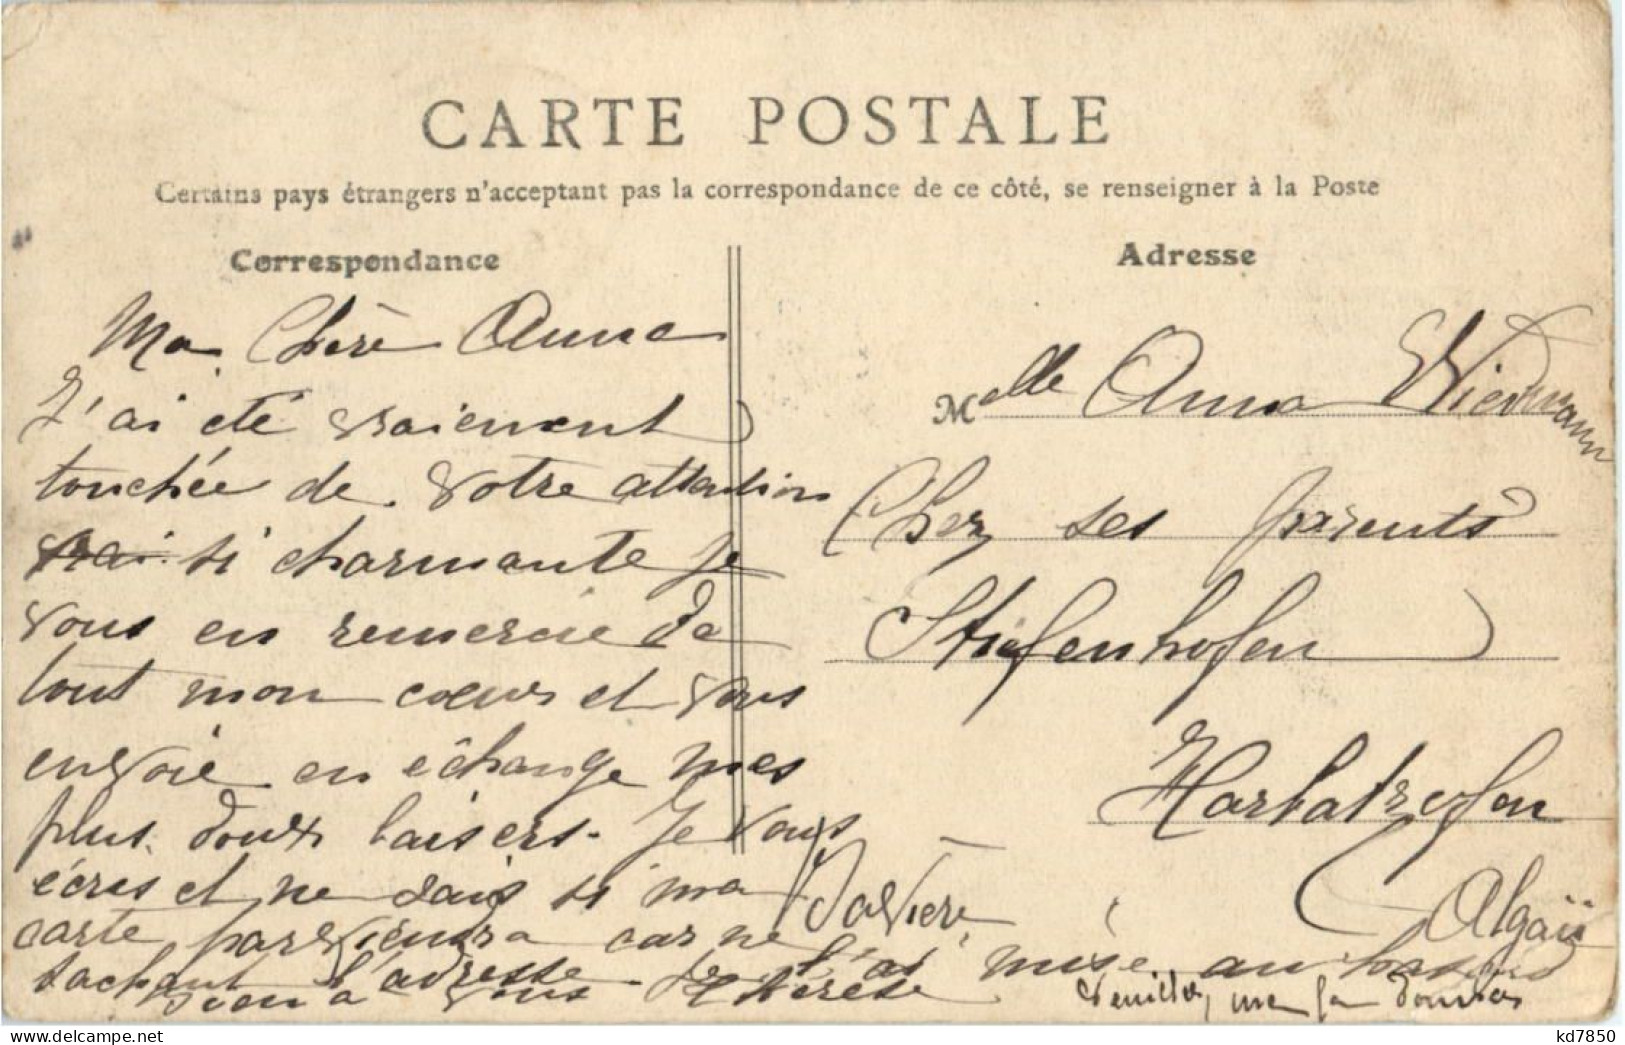 CARTE POSTALE
Certains pays étrangers n'acceptant pas la correspondance de ce côté, se renseigner à la Poste
Correspondance
Ma Chère Anna
J'ai été vraiement
touchée de votre attention
vrai si charmante je
vous en remercie de
tout mon cœur et vous
envoie en échange mes
plus doux baisers. Je vous
écris et ne sais si ma
carte parviendra car ne
sachant l'adresse je l'ai mise au hasard
bien à vous Thérèse
Veuillez, me la donner
Adresse
Melle Anna Wiedmann
Chez ses parents
Stiefenhofen
Harbatzhofen
Bavière Algaü
kd7850